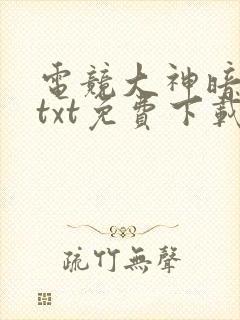 電競大神暗
txt免費下載
疏竹無聲